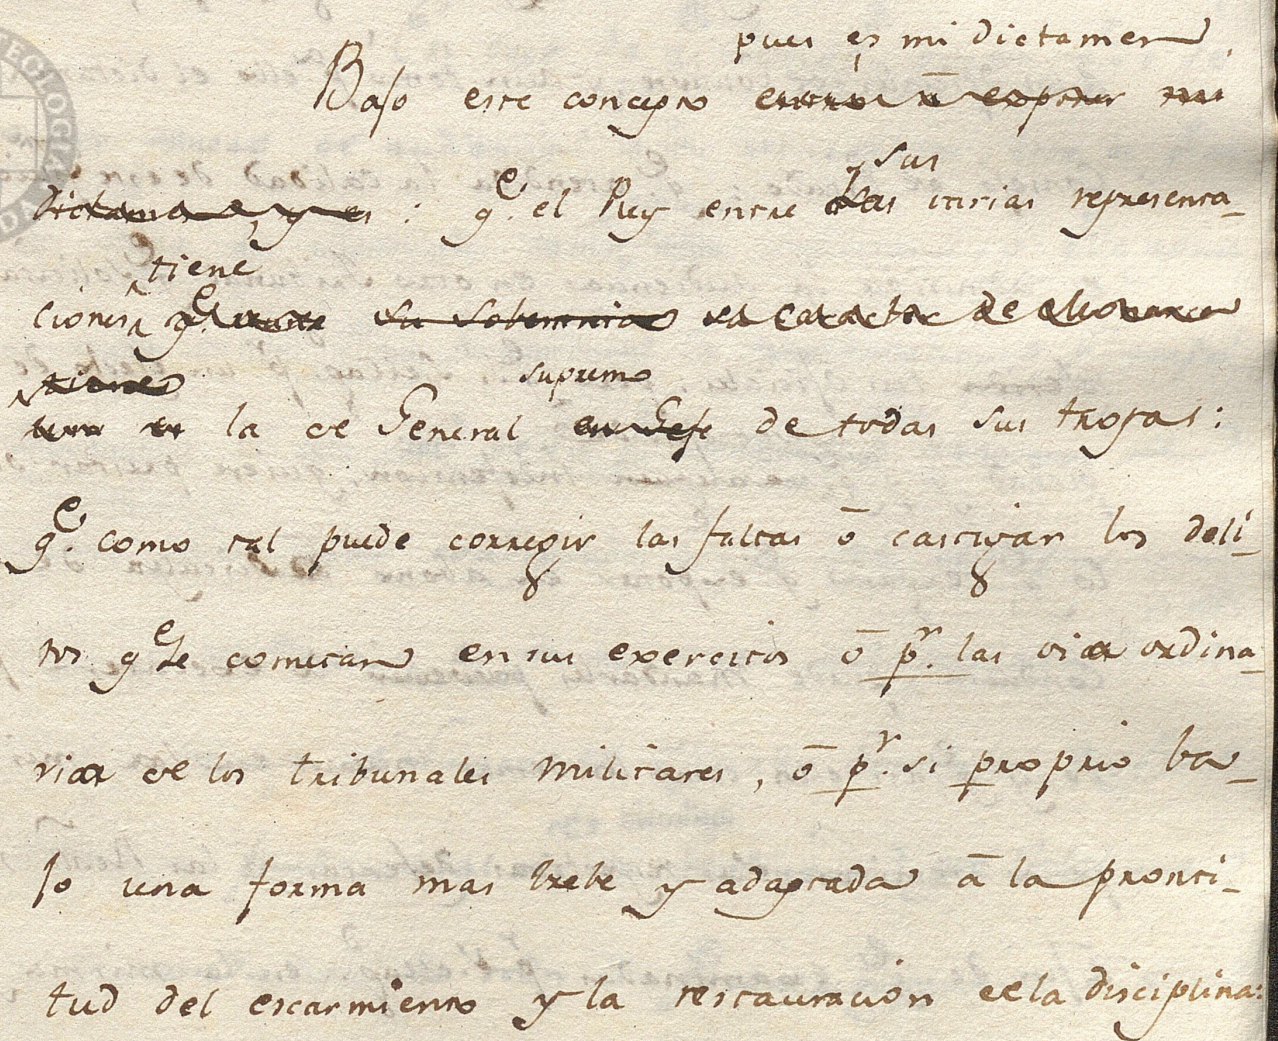 pues es mi dictamen,
Bajo este concepto entro à exponer mi
dictamen, y es: qe. el Rey entre sus
las varias representa-
tiene
ciones qe. su Soberania el caracter de Monarca
tiene supremo
la de General en Gefe de todas sus tropas:
qe. como tal puede corregir las faltas ō castigar los deli-
tos qe se cometan en sus exercitos ō pr. las vias ordina-
rias de los tribunales militares, ō pr. si proprio ba-
jo una forma mas brebe y adaptada ā la pronti-
tud del escarmiento y la restauracion de la disciplina: